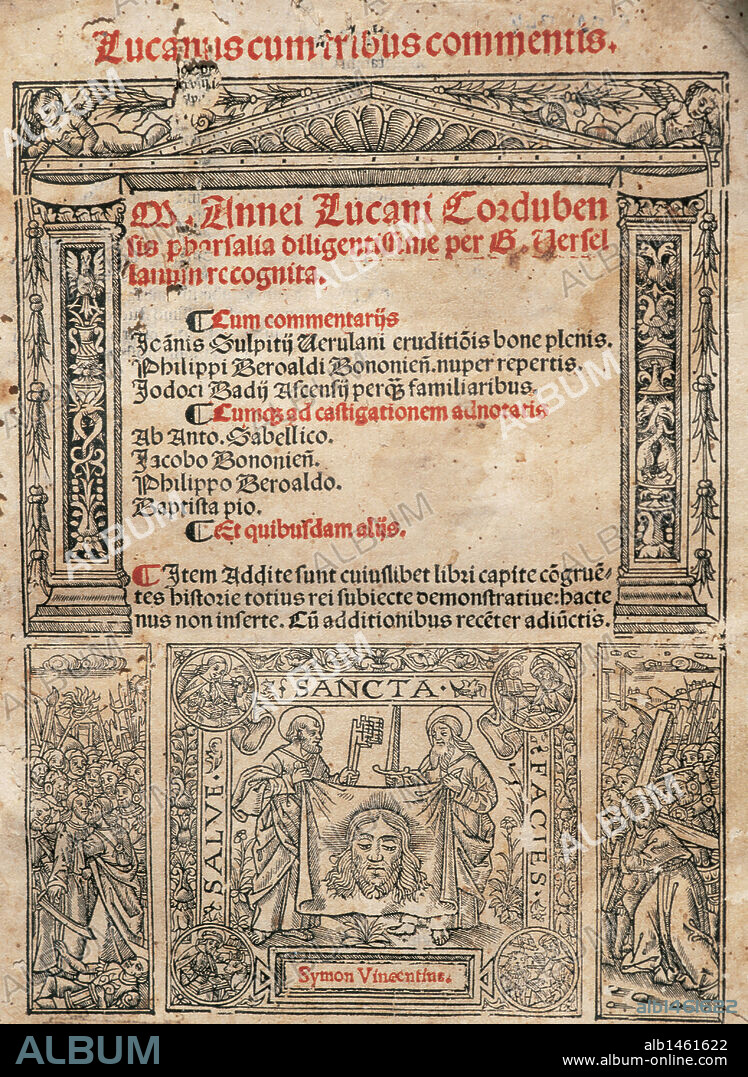 Lucanus cum tribus commentis.
M. Annei Lucani Corduben
sis pharsalia diligentissime per G. Versel
lanum recognita.
Cum commentarijs
Joānis Sulpitij Verulani eruditiōis bone plenis.
Philippi Beroaldi Bononieñ. nuper repertis.
Jodoci Badij Ascensij perq̄ familiaribus
Cumq; ad castigationem adnotatis
Ab Anto. Sabellico.
Jacobo Bononieñ.
Philippo Beroaldo.
Baptista pio.
Et quibusdam alijs.
Item Addite sunt cuiuslibet libri capite cōgruē-
tes historie totius rei subiecte demonstratiue: hacte
nus non inserte. Cū additionibus recēter adiūctis.
SALVE
SANCTA
FACIES
Symon Vincentius.
ALBUM
alb1461622
ALBUM
alb1461622
www.album-online.com